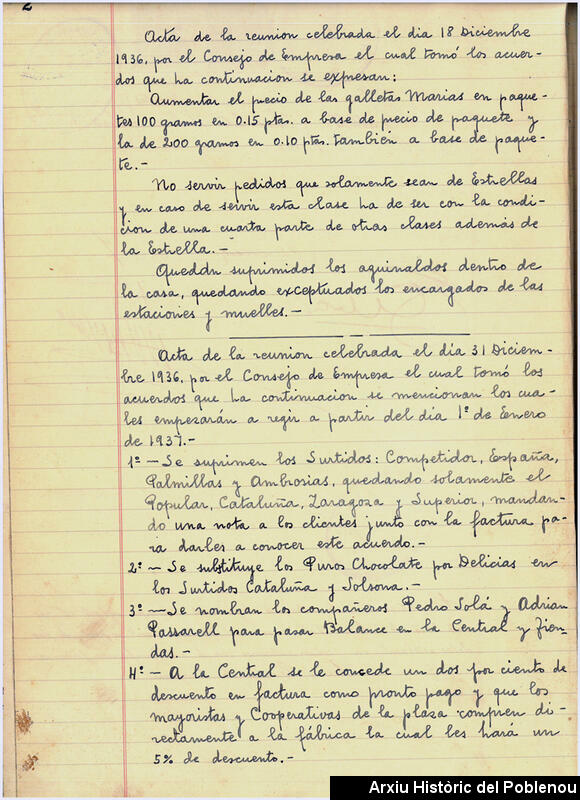 2
Acta de la reunion celebrada el dia 18 Diciembre
1936, por el Consejo de Empresa el cual tomó los acuer-
dos que ha continuacion se expresan:
Aumentar el precio de las galletas Marias en paque-
tes 100 gramos en 0.15 ptas. a base de precio de paquete y
la de 200 gramos en 0.10 ptas. también a base de paque-
te.-
No servir pedidos que solamente sean de Estrellas
y en caso de servir esta clase ha de ser con la condi-
cion de una cuarta parte de otras clases además de
la Estrella.-
Queddn suprimidos los aguinaldos dentro de
la casa, quedando exceptuados los encargados de las
estaciones y muelles.-
Acta de la reunion celebrada el día 31 Diciem-
bre 1936, por el Consejo de Empresa el cual tomó los
acuerdos que ha continuacion se mencionan los cua-
les empezarán a regir a partir del dia 1º de Enero
de 1937.-
1º - Se suprimen los Surtidos: Competidor, España,
Palmillas y Ambrosias, quedando solamente el
Popular, Cataluña, Zaragoza y Superior, mandan-
do una nota a los clientes junto con la factura pa-
ra darles a conocer este acuerdo.-
2º - Se substituye los Puros Chocolate por Delicias en
los Surtidos Cataluña y Solsona.-
3º - Se nombran los compañeros Pedro Solá y Adrian
Passarell para pasar Balance en la Central y Tien-
das.-
4º - A la Central se le concede un dos por ciento de
descuento en factura como pronto pago y que los
mayoristas y Cooperativas de la plaza compren di-
rectamente a la fábrica la cual les hará un
5% de descuento.-
Arxiu Històric del Poblenou